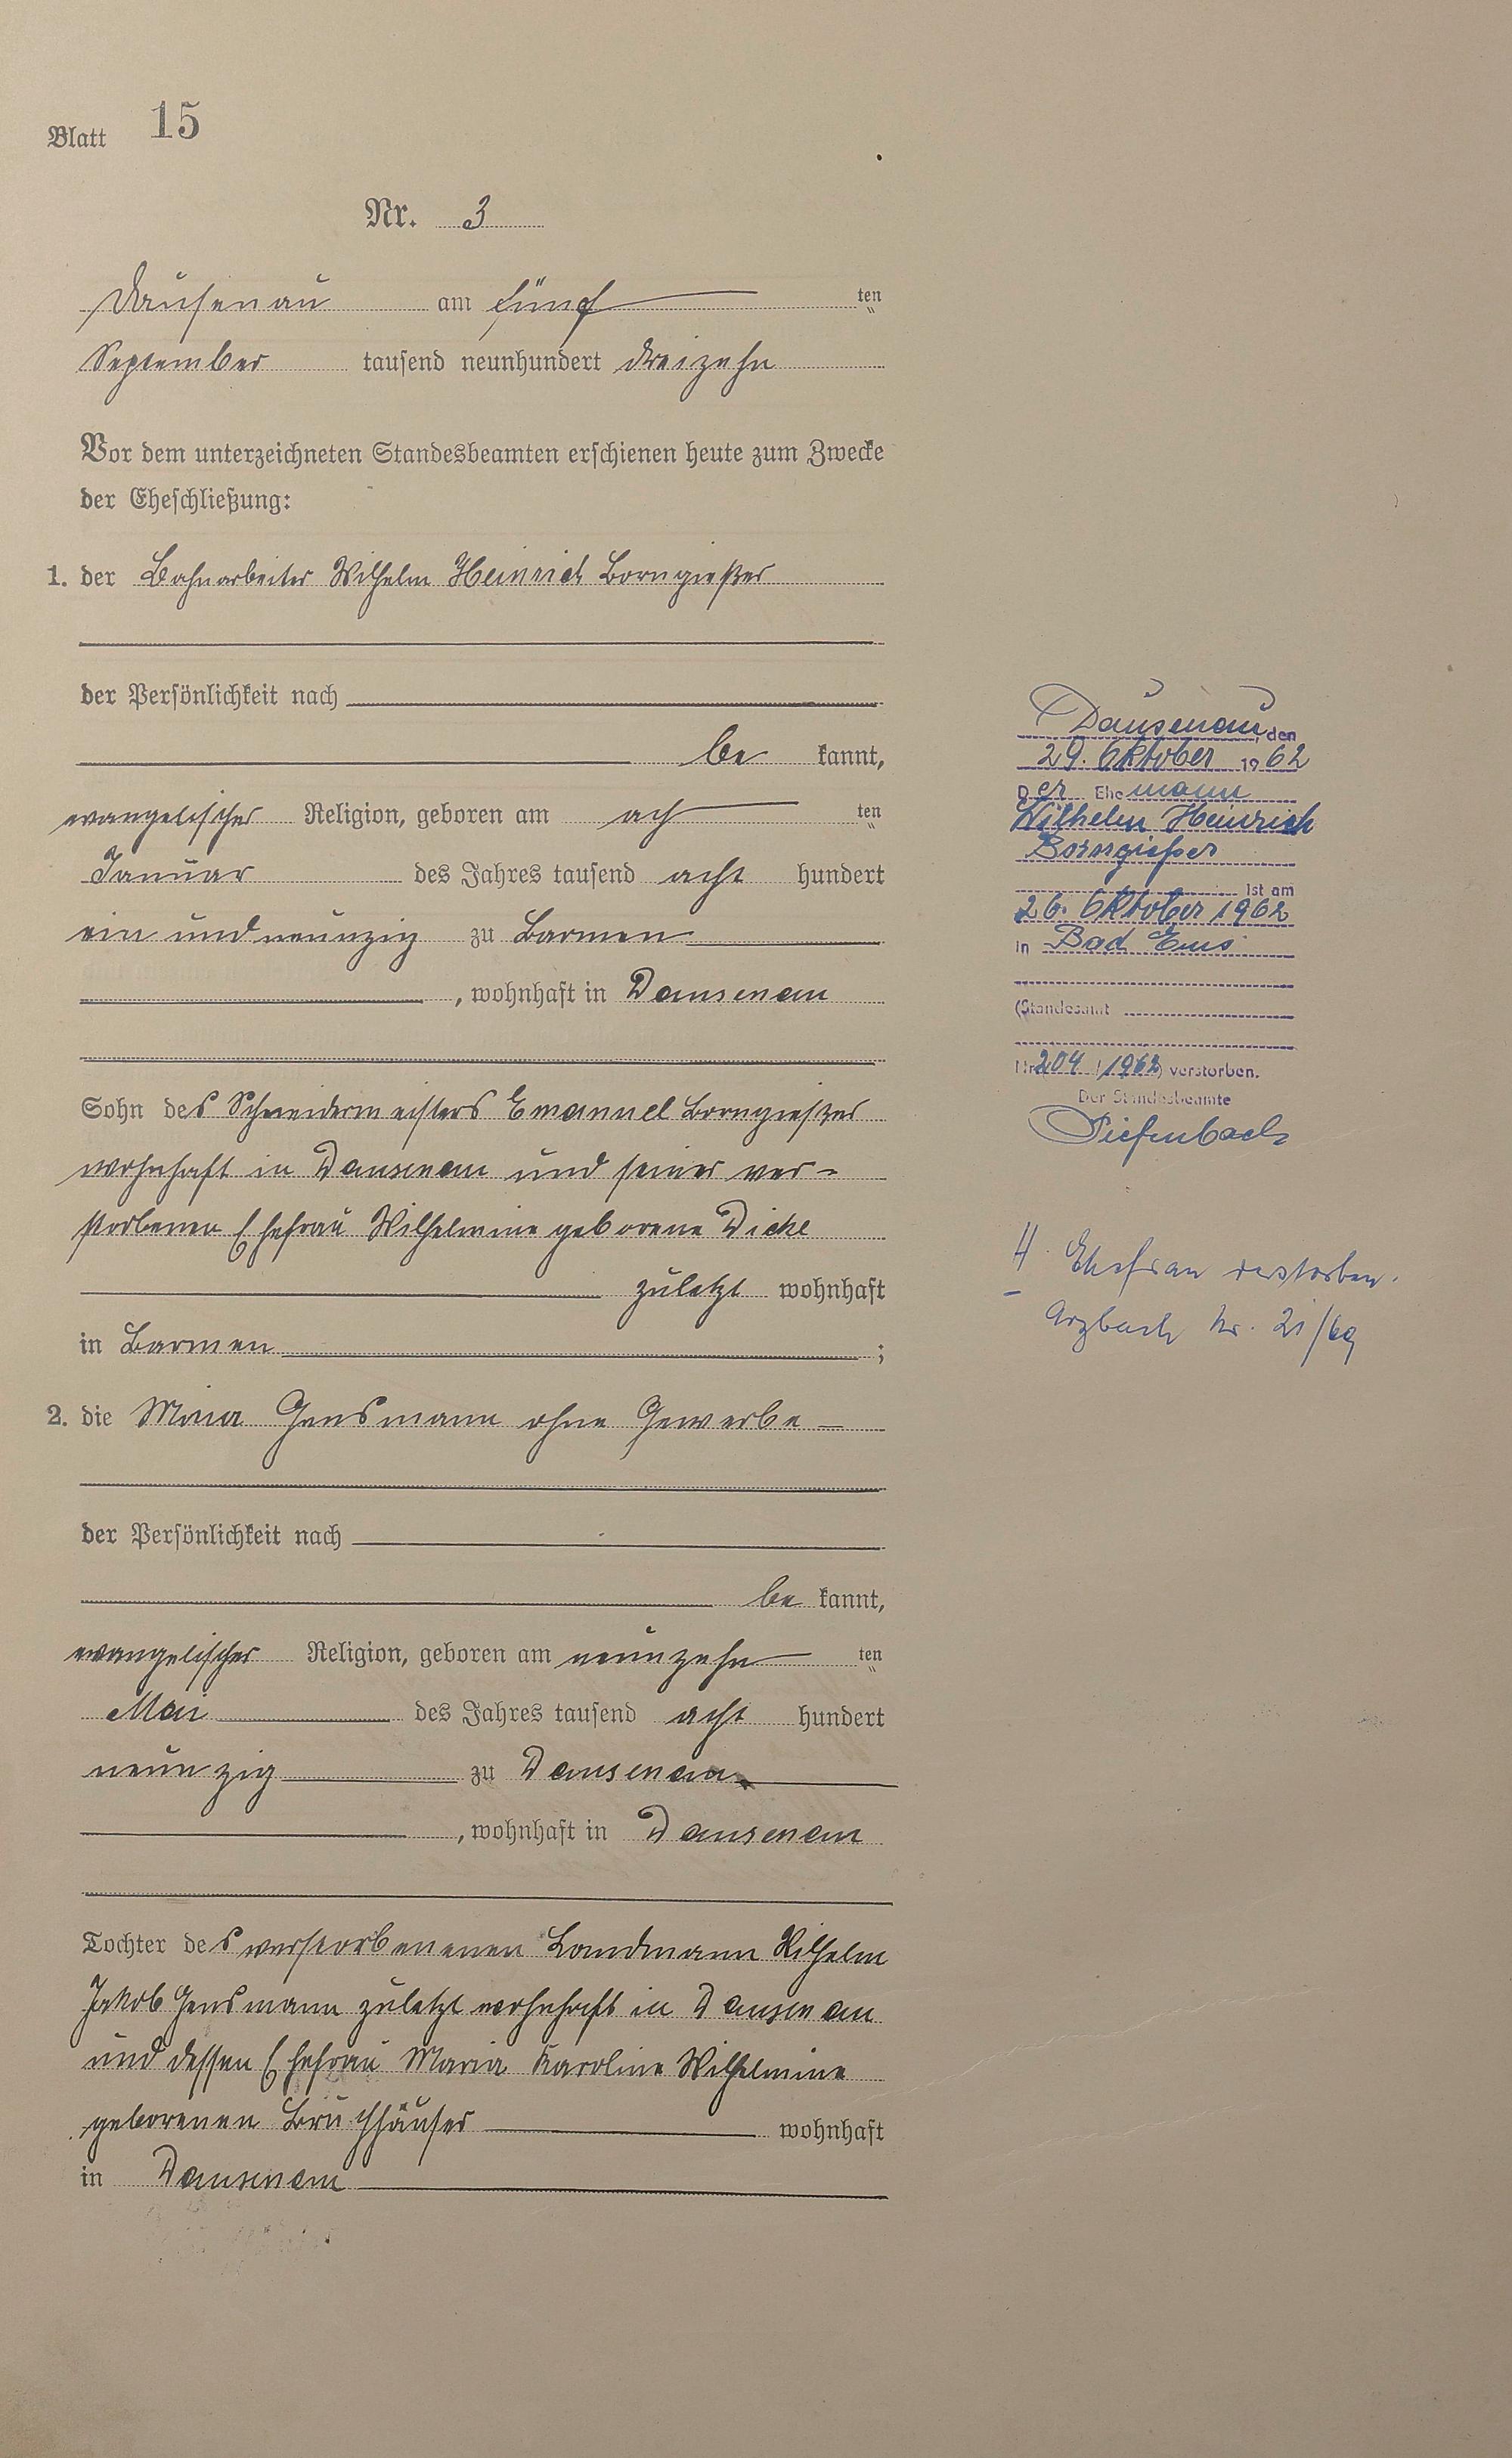 Blatt 15
Nr. 3
Dausenau am fünf ten
September tausend neunhundert dreizehn
Vor dem unterzeichneten Standesbeamten erschienen heute zum Zwecke
der Eheschließung:
1. der Bahnarbeiter Wilhelm Heinrich Borngießer
der Persönlichkeit nach
be kannt,
evangelischer Religion, geboren am ach ten
Januar des Jahres tausend acht hundert
ein und neunzig zu Barmen
, wohnhaft in Dausenau
Sohn des Schneidermeisters Emanuel Borngießer
wohnhaft in Dausenau und seiner ver-
storbenen Ehefrau Wilhelmine geborene Dicke
zuletzt wohnhaft
in Barmen ;
2. die Mina Gensmann ohne Gewerbe
der Persönlichkeit nach
be kannt,
evangelischer Religion, geboren am neunzehn ten
Mai des Jahres tausend acht hundert
neunzig zu Dausenau
, wohnhaft in Dausenau
Tochter des verstorbenenen Landmann Wilhelm
Jakob Gensmann zuletzt wohnhaft in Dausenau
und dessen Ehefrau Maria Karoline Wilhelmine
geborenen Bruchhäuser wohnhaft
in Dausenau
Dausenau, den
29. Oktober 1962
Der Ehemann
Wilhelm Heinrich
Borngießer
ist am
26. Oktober 1962
in Bad Ems
(Standesamt
Nr 204 / 1962) verstorben.
Der Standesbeamte
Diefenbach
Ehefrau verstorben.
Arzbach Nr. 21/69